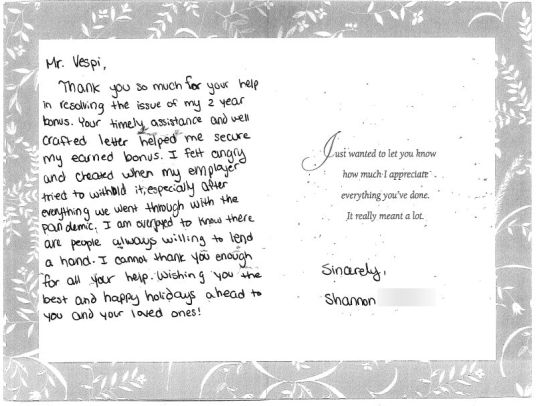 Mr. Vespi,
Thank you so much for your help
in resolving the issue of my 2 year
bonus. Your timely assistance and well
crafted letter helped me secure
my earned bonus. I felt angry
and cheated when my employer
tried to withold it, especially after
everything we went through with the
pandemic. I am overjoyed to know there
are people always willing to lend
a hand. I cannot thank you enough
for all your help. Wishing you the
best and happy holidays ahead to
you and your loved ones!
Just wanted to let you know
how much I appreciate
everything you've done.
It really meant a lot.
Sincerely,
Shannon